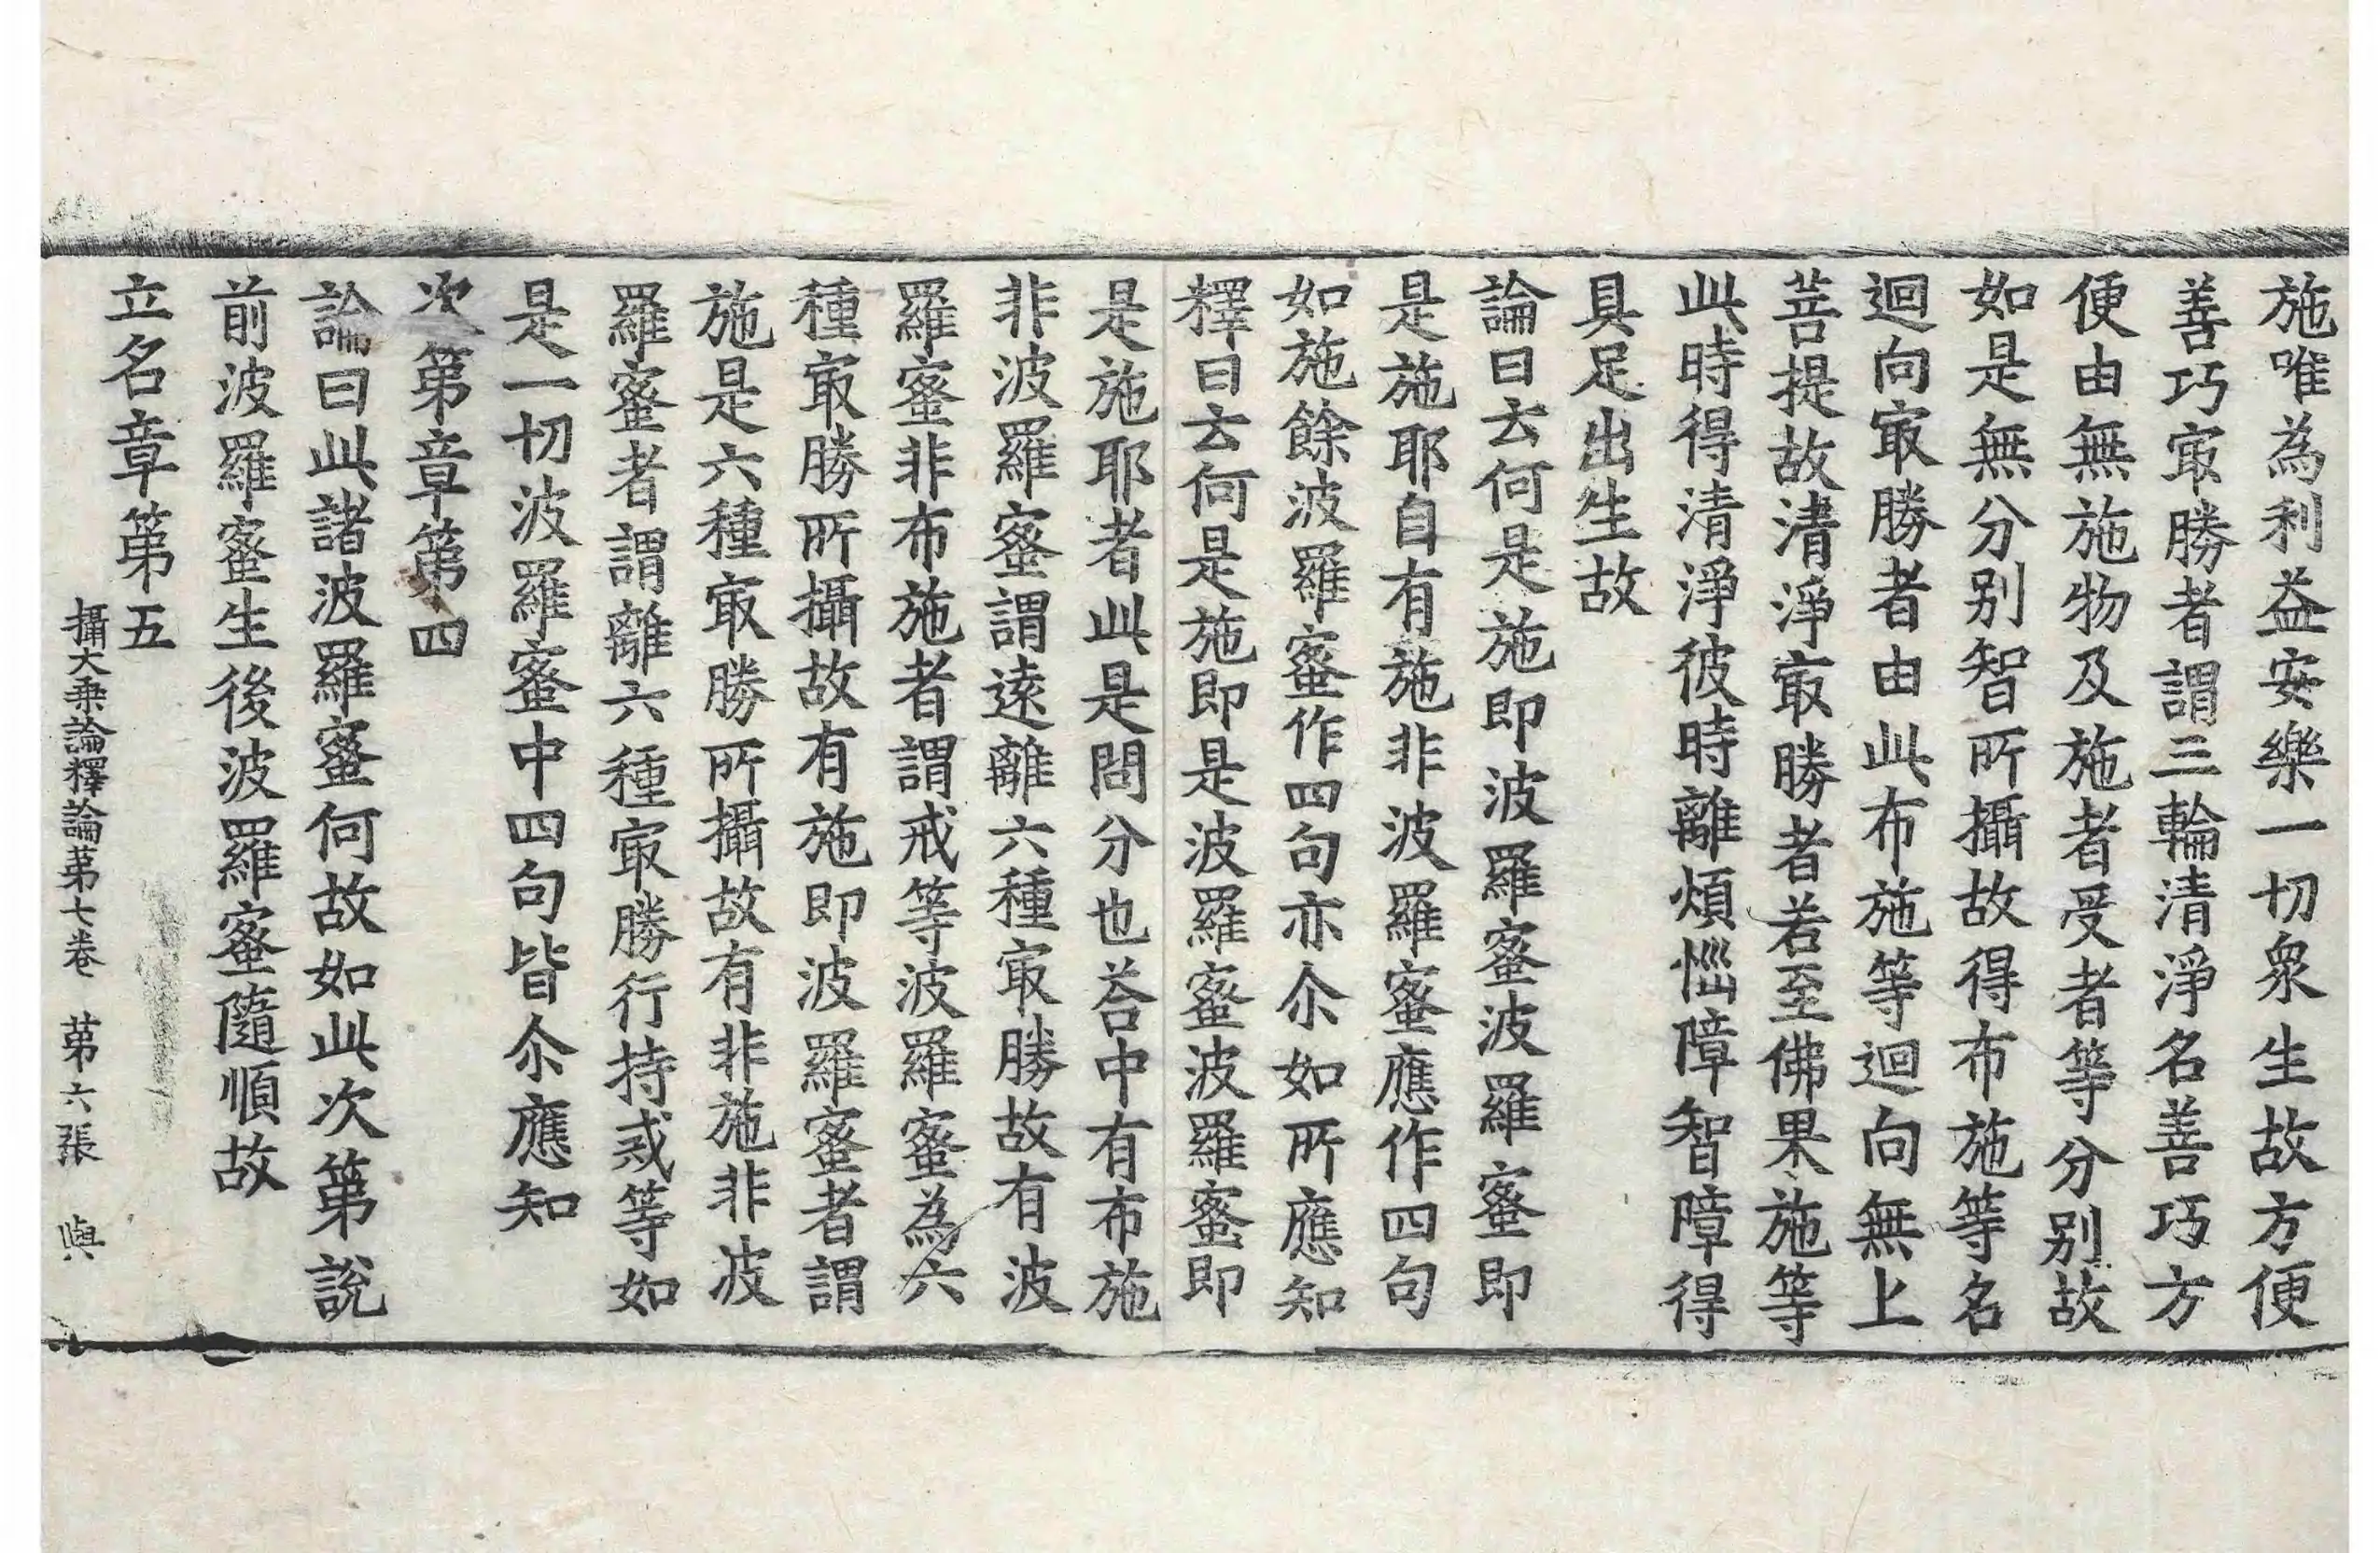 施唯為利益安樂一切衆生故方便
善巧㝡勝者謂三輪清淨名善巧方
便由無施物及施者受者等分別故
如是無分別智所攝故得布施等名
迴向㝡勝者由此布施等迴向無上
菩提故清淨㝡勝者若至佛果施等
此時得清淨彼時離煩惱障智障得
具足出生故
論曰云何是施即波羅蜜波羅蜜即
是施耶自有施非波羅蜜應作四句
如施餘波羅蜜作四句亦尒如所應知
釋曰云何是施即是波羅蜜波羅蜜即
是施耶者此是問分也荅中有布施
非波羅蜜謂遠離六種㝡勝故有波
羅蜜非布施者謂戒等波羅蜜為六
種㝡勝所攝故有施即波羅蜜者謂
施是六種㝡勝所攝故有非施非波
羅蜜者謂離六種㝡勝行持戒等如
是一切波羅蜜中四句皆尒應知
次第章第四
論曰此諸波羅蜜何故如此次第說
前波羅蜜生後波羅蜜隨順故
立名章第五
攝大乘論釋論第七卷　第六張　與